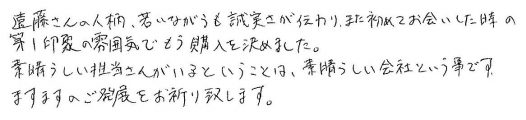 遠藤さんの人柄、若いながらも誠実さが伝わり、また初めてお会いした時の
第1印象の雰囲気でもう購入を決めました。
素晴らしい担当さんがいるということは、素晴らしい会社という事です。
ますますのご発展をお祈り致します。